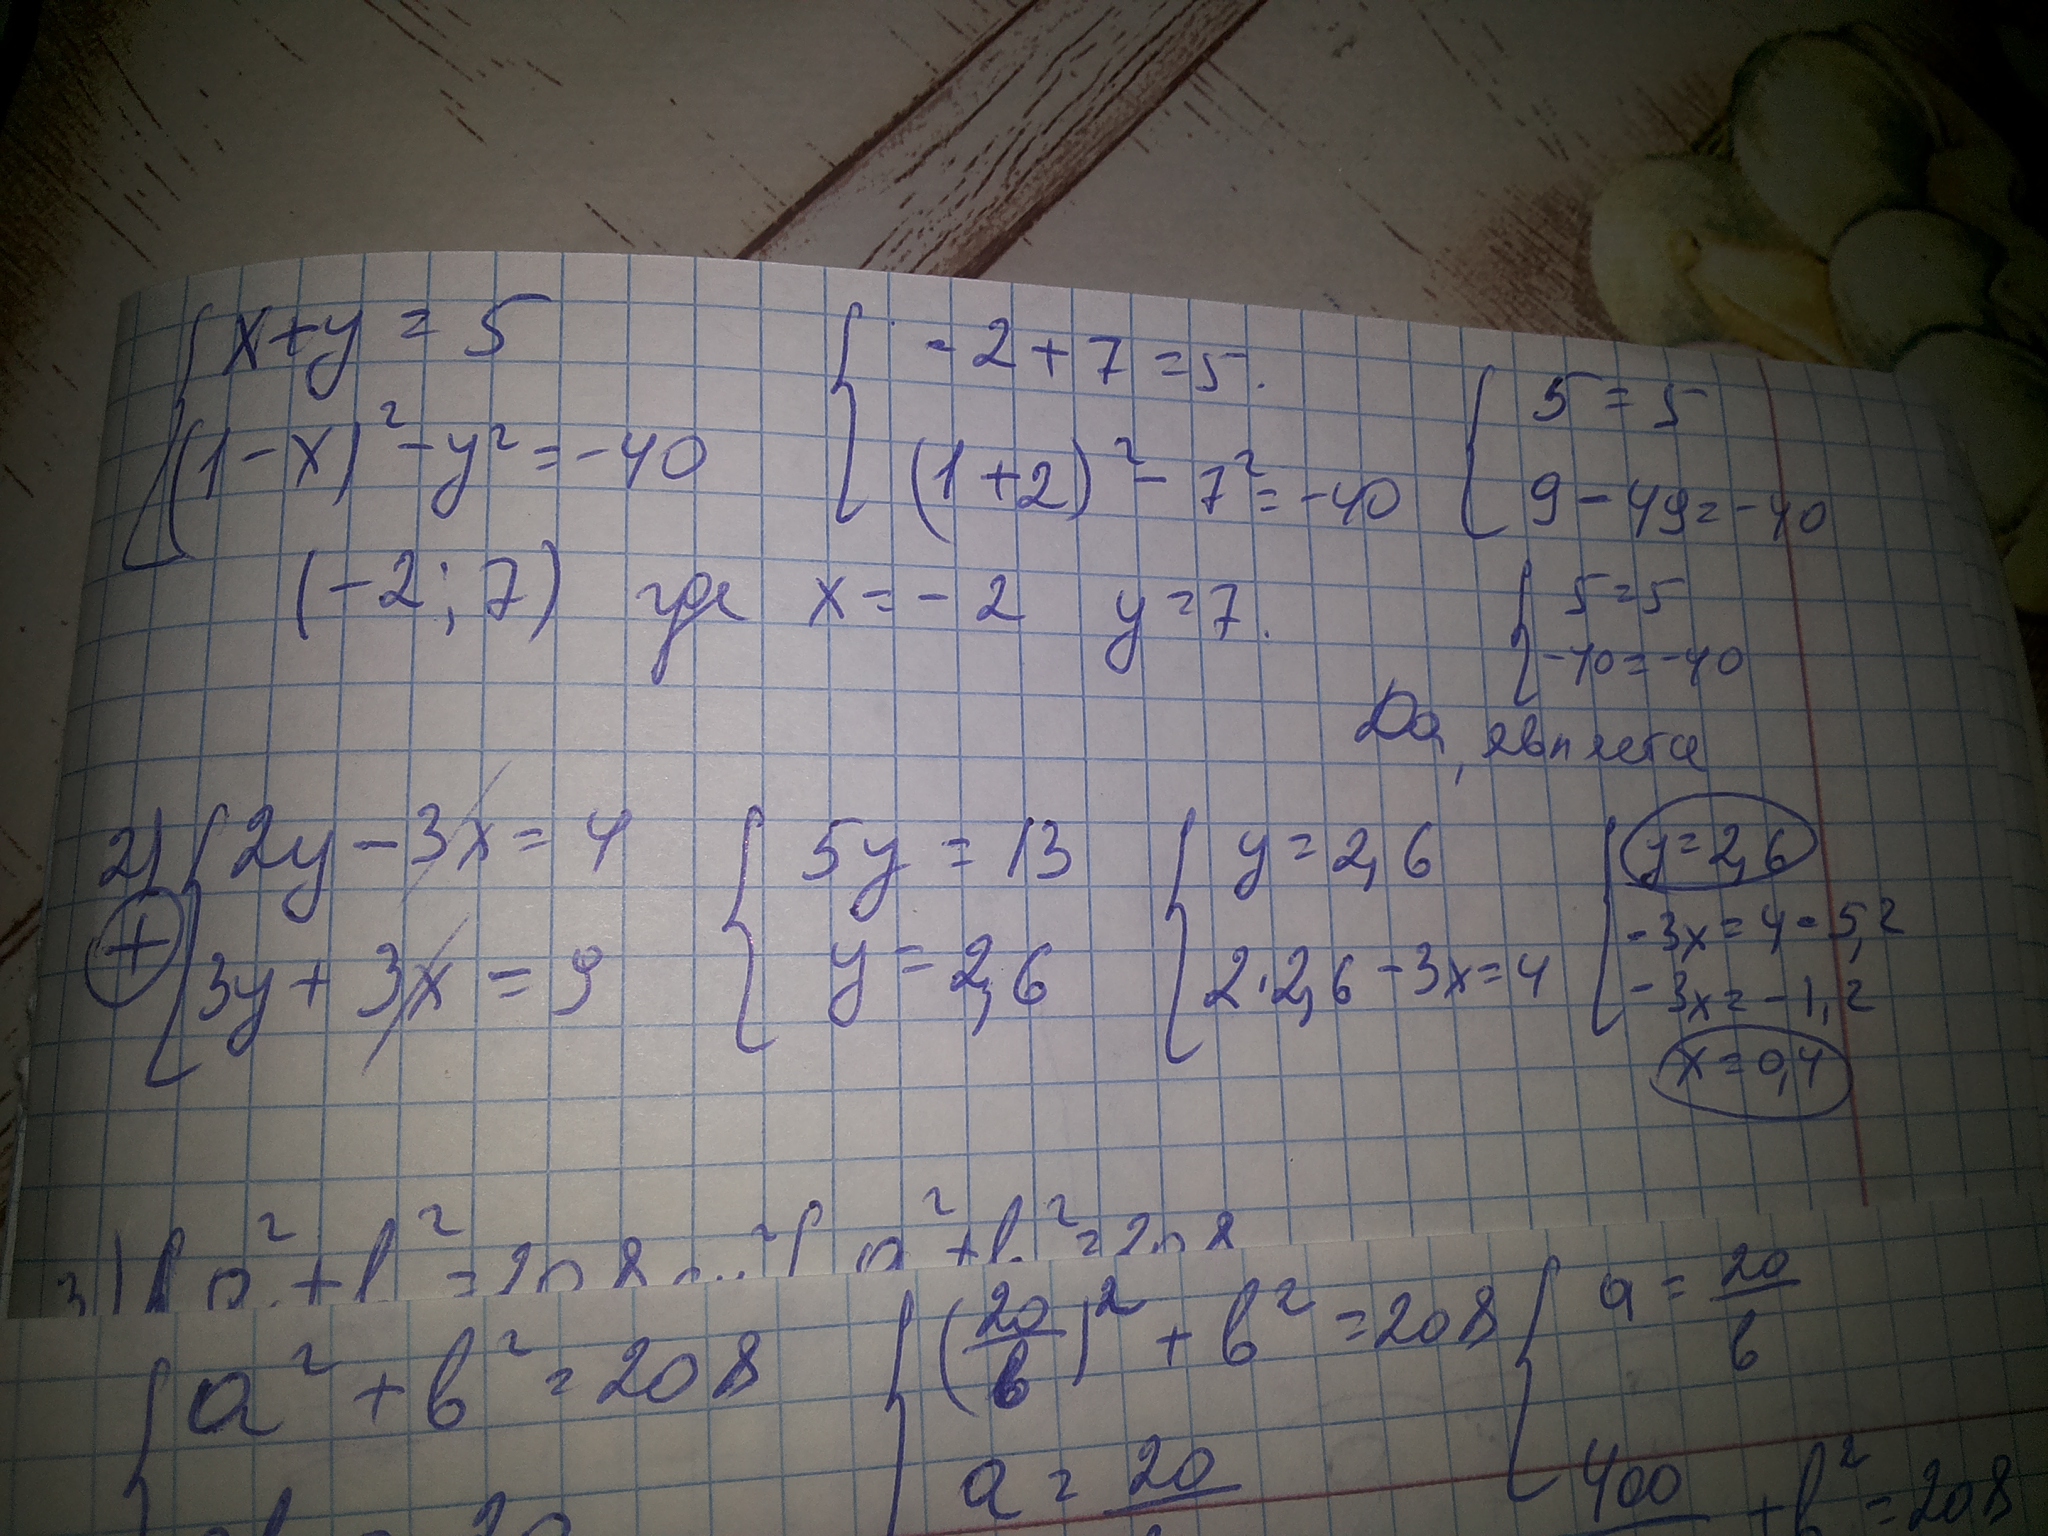 x+y=5
(1-x)²-y²=-40
-2+7=5.
(1+2)²-7²=-40
5=5
9-49=-40
(-2;7) где x=-2 y=7.
5=5
-40=-40
Да, является
2) 2y-3x=4
+ 3y+3x=9
5y=13
y=2,6
y=2,6
2·2,6-3x=4
y=2,6
-3x=4-5,2
-3x=-1,2
x=0,4
3) a²+b²=208
a²+b²=208
a²+b²=208
(20/b)²+b²=208
a=20
a=20/b
400 +b²=208